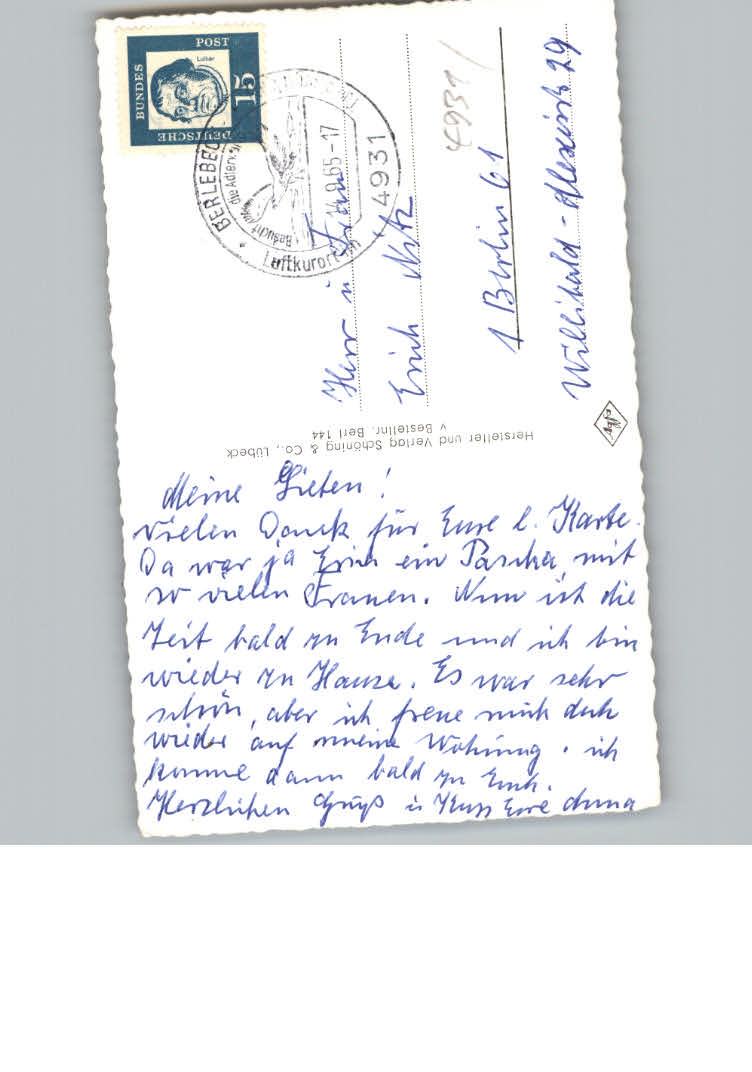 DEUTSCHE
BUNDES
POST
Luther
15
BERLEBECK
Luftkurort
Besucht
die Adler
14.9.65-17
4931
4931
Herr u Frau
Erich Nitz
1 Berlin 61
Willibald-Alexisstr 29
Hersteller und Verlag Schöning & Co., Lübeck
v Bestellnr. Berl 144
Meine Lieben!
Vielen Dank für Eure l. Karte.
Da war ja Erich ein Pascha mit
so vielen Frauen. Nun ist die
Zeit bald zu Ende und ich bin
wieder zu Hause. Es war sehr
schön, aber ich freue mich doch
wieder auf meine Wohnung. ich
komme dann bald zu Euch.
Herzlichen Gruß u Kuss Eure Anna